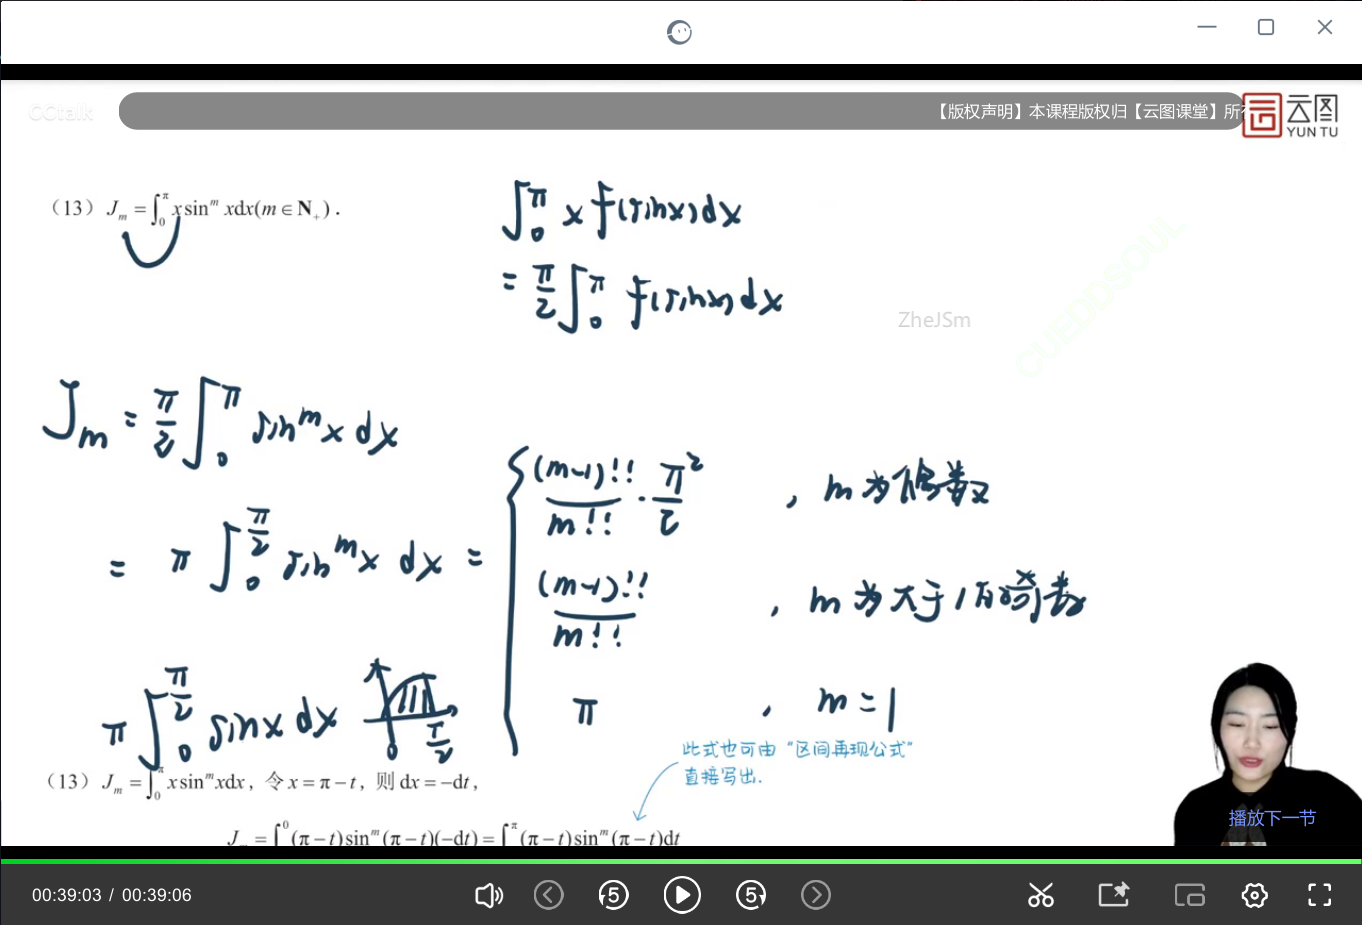 CCtalk
【版权声明】本课程版权归【云图课堂】所
云图
YUN TU
（13）J_m = ∫_0^π x sin^m x dx (m ∈ N_+) .
∫_0^π x f(sinx)dx
= π/2 ∫_0^π f(sinx)dx
ZheJSm
CUEDDSOUL
J_m = π/2 ∫_0^π sin^m x dx
= π ∫_0^{π/2} sin^m x dx =
(m-1)!!/m!! · π²/2 , m为偶数
(m-1)!!/m!! , m为大于1的奇数
π , m=1
π ∫_0^{π/2} sinx dx
0 π/2
此式也可由“区间再现公式”
直接写出.
（13）J_m = ∫_0^π x sin^m x dx，令 x = π − t，则 dx = −dt，
J_m = ∫_π^0 (π − t) sin^m (π − t)(−dt) = ∫_0^π (π − t) sin^m (π − t)dt
播放下一节
00:39:03 / 00:39:06
5
5